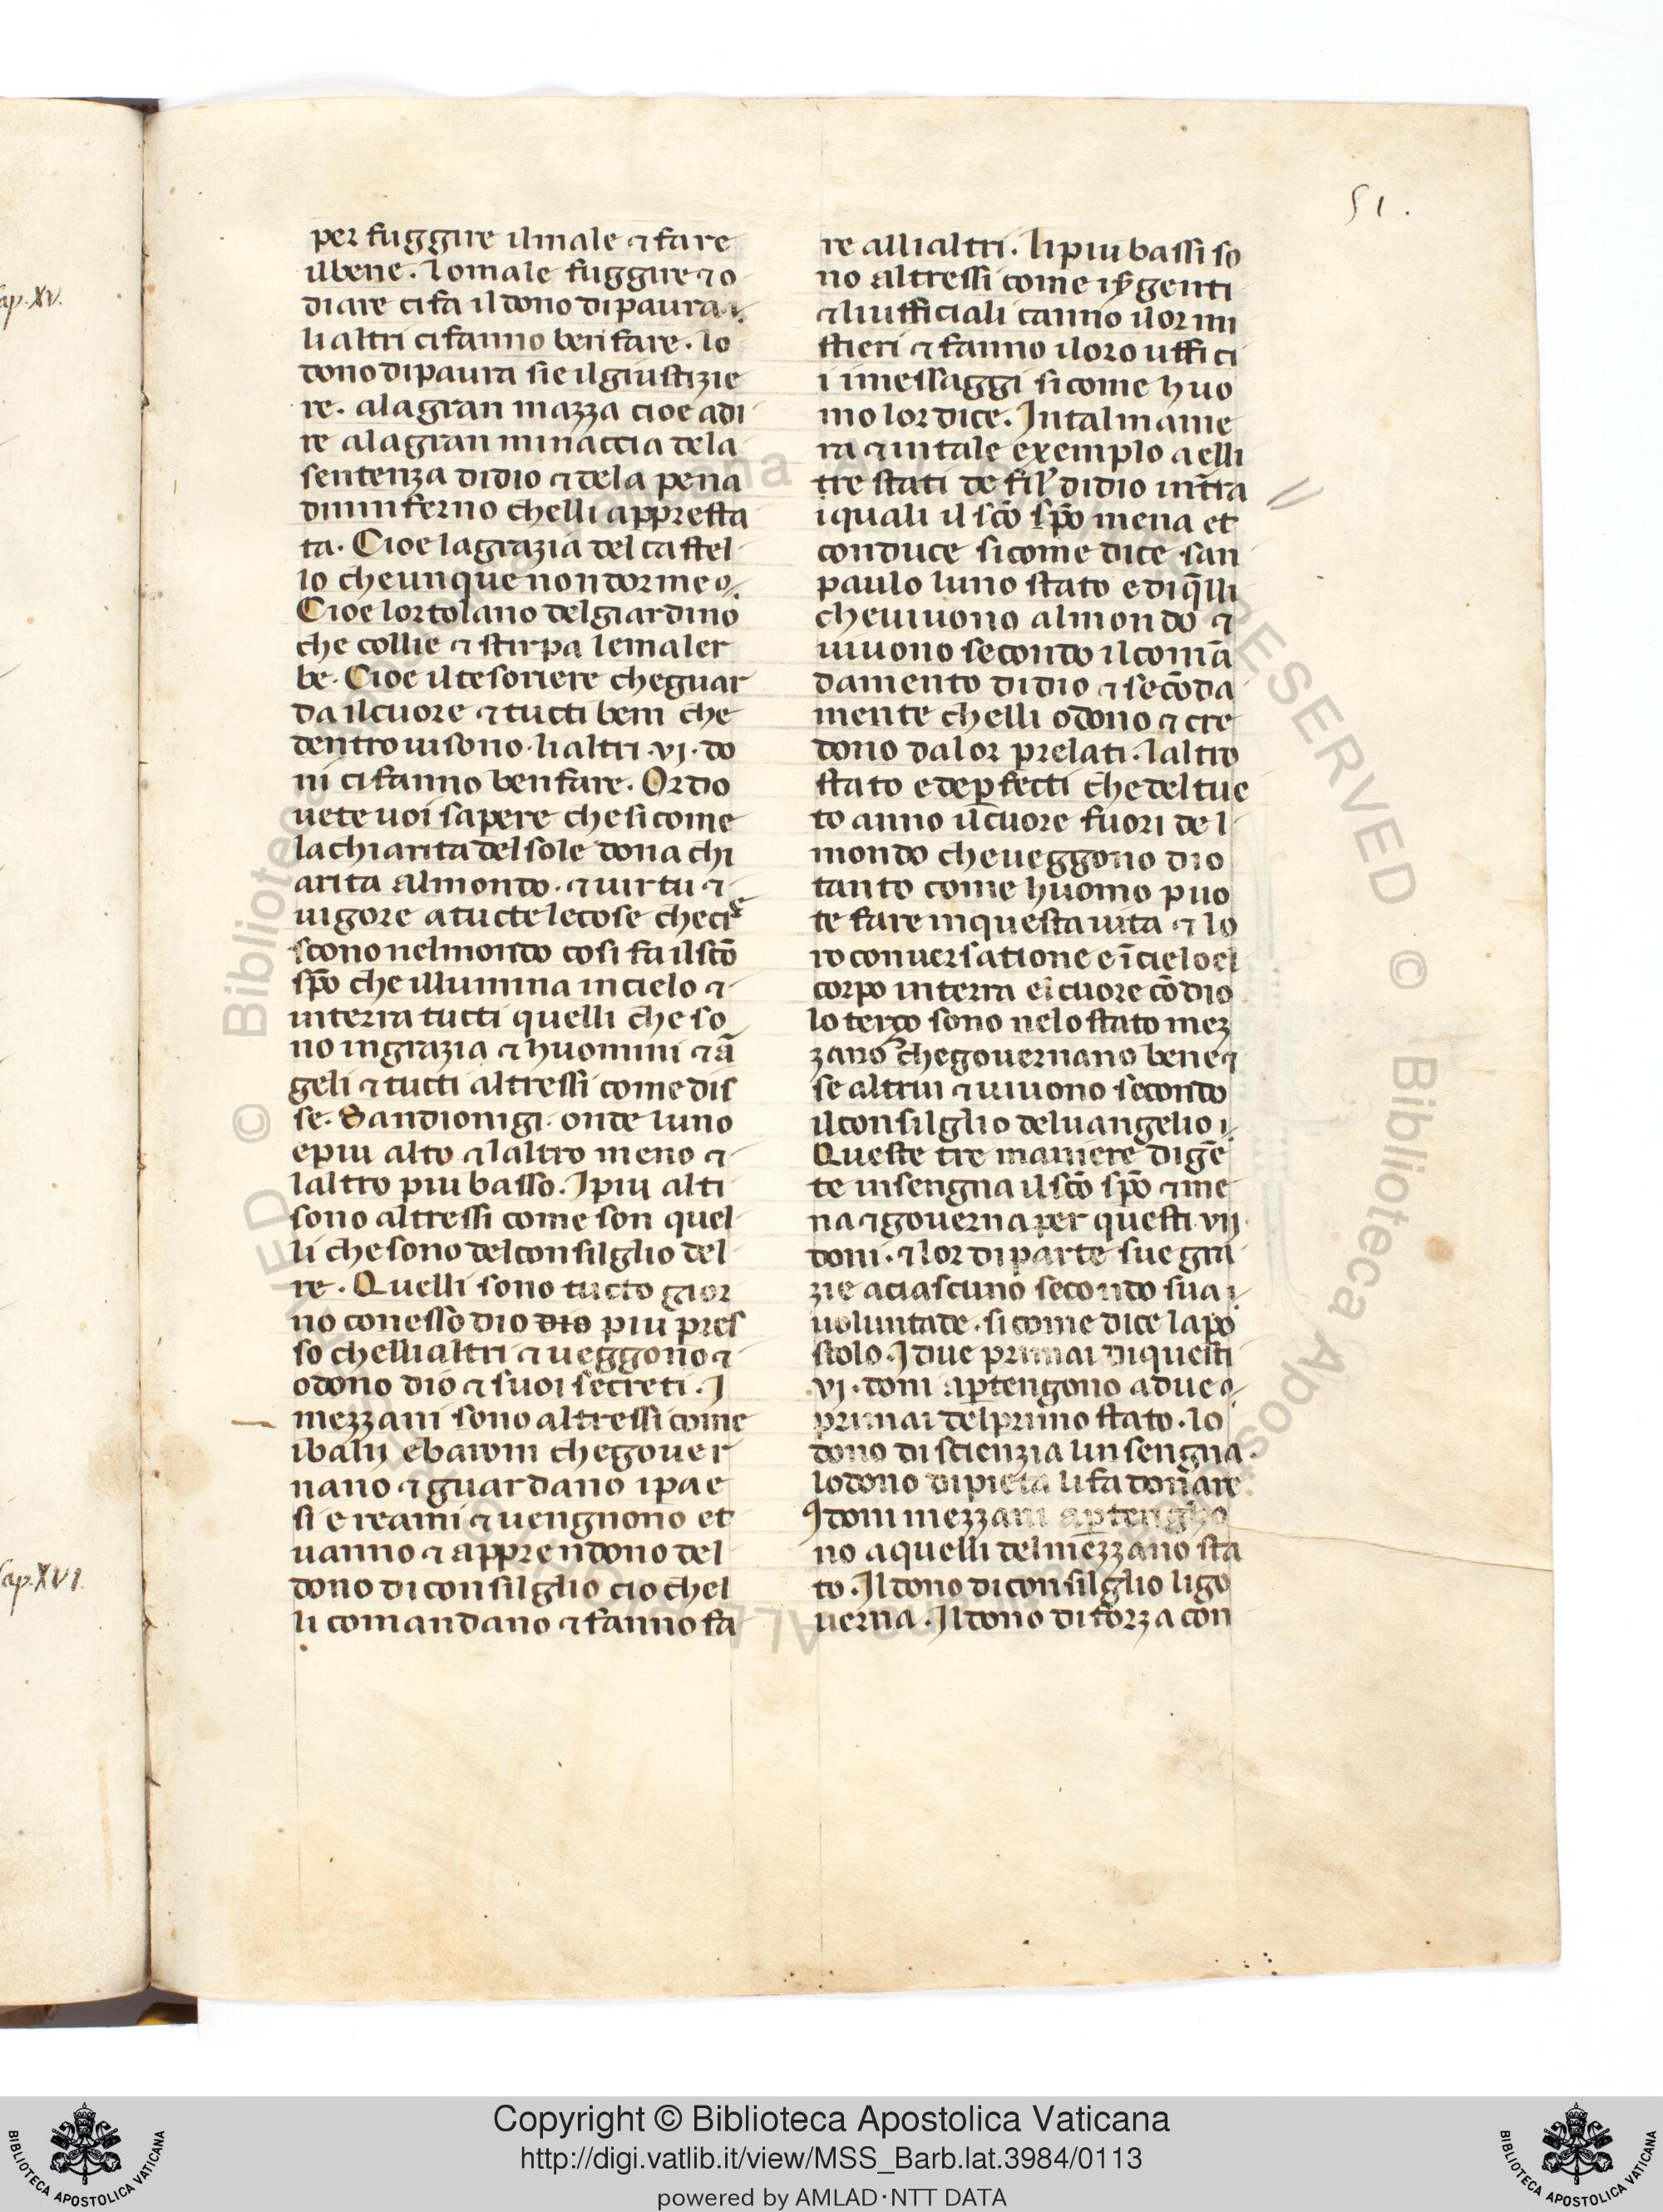 51.
per fuggire il male ⁊ fare
il bene. lo male fuggire ⁊ o
diare ci fa il dono di paura.
li altri ci fanno ben fare. lo
dono di paura sie il giustizie
re. ala gran mazza cioe adi
re ala gran minaccia dela
sentenza didio ⁊ dela pena
dininferno chelli appresta
ta. Cioe la grazia del castel
lo che unque non dorme
Cioe lortolano del giardino
che collie ⁊ stirpa le male r
be. Cioe il tesoriere che guar
da il cuore ⁊ tucti beni che
dentro vi sono. li altri .vj. do
ni ci fanno ben fare. Or do
uete uoi sapere che si come
la chiarita del sole dona chi
arita al mondo. ⁊ uirtu ⁊
uigore a tucte le cose checre
scono nel mondo cosi fa il sc̄o
sp̄o che illumina in cielo ⁊
in terra tucti quelli che so
no in grazia ⁊ huomini ⁊ ā
geli ⁊ tucti altressi come dis
se. San dionigi. onde luno
e piu alto ⁊ laltro meno ⁊
laltro piu basso. I piu alti
sono altressi come son quel
li che sono del consilglio del
re. Quelli sono tucto gior
no con esso dio dio piu pres
so chelli altri ⁊ ueggono ⁊
odono dio ⁊ suoi secreti. I
mezzani sono altressi come
i balij e baroni che gouer
nano ⁊ guardano i pae
si e reami ⁊ uengnono et
uanno ⁊ apprendono del
dono di consilglio cio chel
li comandano ⁊ fanno fa
re alli altri. li piu bassi so
no altressi come i genti
⁊ li ufficiali canno i lor mi
stieri ⁊ fanno i loro uffici
i messaggi si come huo
mo lor dice. In tal manie
ra ⁊ in tale exemplo a elli
tre stati de didio int̄ra
i quali il sc̄o sp̄o mena et
conduce si come dice san
paulo luno stato e di q̄lli
che uiuono al mondo ⁊
uiuono secondo il comā
damento di dio ⁊ secōda
mente chelli odono ⁊ cre
dono da lor prelati. laltro
stato e de p̄fecti che del tuc
to anno il cuore fuori del
mondo che ueggono dio
tanto come huomo puo
te fare in questa uita ⁊ lo
ro conuersatione e ī cielo el
corpo in terra el cuore cō dio
lo terço sono nelo stato mez
zano che gouernano bene
se altrui ⁊ uiuono secondo
il consilglio deluangelio
Queste tre maniere di gē
te insengna il sc̄o sp̄o ⁊ me
na ⁊ gouerna per questi vij
doni. ⁊ lor diparte sue gra
zie a ciascuno secondo sua
uoluntade. si come dice lapo
stolo. I due primai di questi
vj. doni ap̄tengono a due
primai del primo stato. lo
dono di scienzia linsengna.
lo dono di pieta li fa donare
I doni mezzani ap̄tengho
no a quelli del mezzano sta
to. Il dono di consilglio li go
uerna. Il dono di forza con
ap. XV.
Cap. XVI.
© Biblioteca Apostolica Vaticana ALL RIGHTS RESERVED
© Biblioteca Apostolica Vaticana ALL RIGHTS RESERVED
BIBLIOTECA APOSTOLICA VATICANA
Copyright © Biblioteca Apostolica Vaticana
http://digi.vatlib.it/view/MSS_Barb.lat.3984/0113
powered by AMLAD·NTT DATA
BIBLIOTECA APOSTOLICA VATICANA